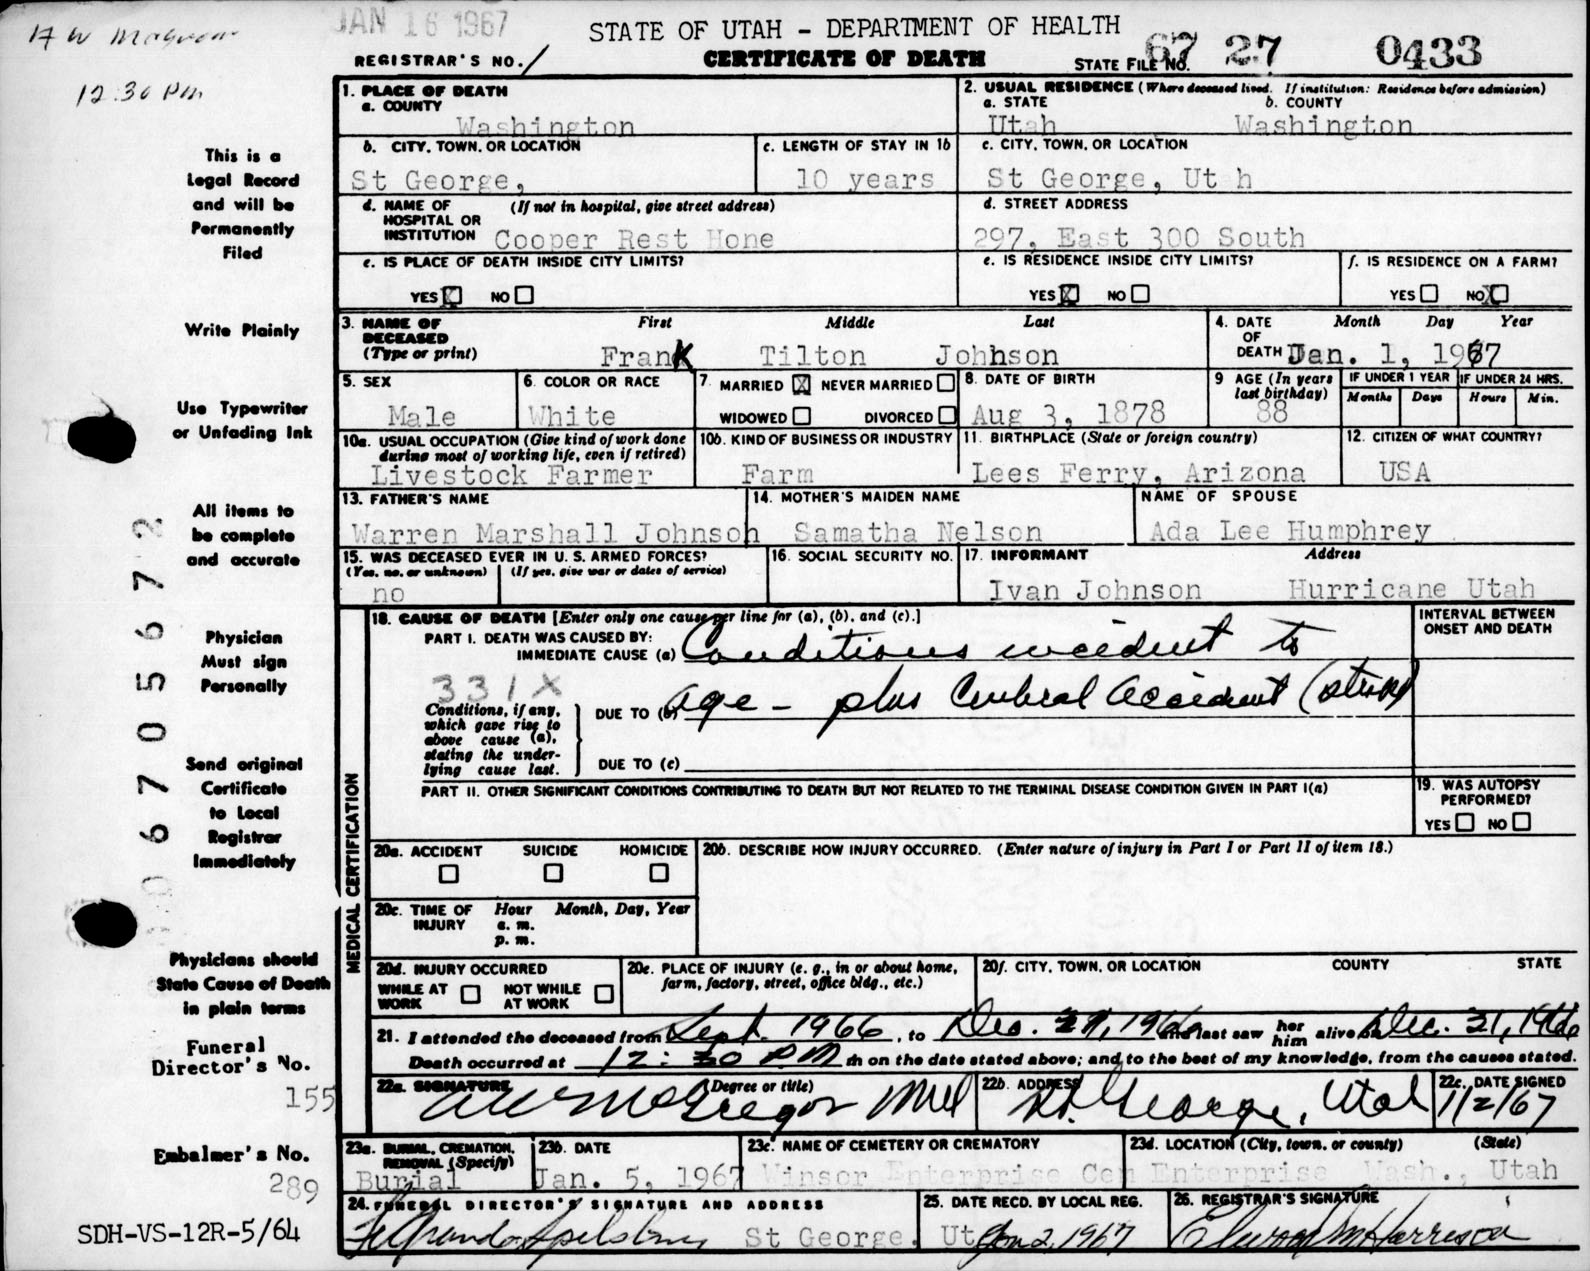 JAN 16 1967
STATE OF UTAH - DEPARTMENT OF HEALTH
REGISTRAR'S NO. 1
CERTIFICATE OF DEATH
STATE FILE NO. 67 27 0433
12:30 PM
This is a
Legal Record
and will be
Permanently
Filed
Write Plainly
Use Typewriter
or Unfading Ink
All items to
be complete
and accurate
Physician
Must sign
Personally
Send original
Certificate
to Local
Registrar
Immediately
Physicians should
State Cause of Death
in plain terms
Funeral
Director's No.
155
Embalmer's No.
289
SDH-VS-12R-5/64
06705672
1. PLACE OF DEATH
a. COUNTY
Washington
2. USUAL RESIDENCE (Where deceased lived. If institution: Residence before admission)
a. STATE b. COUNTY
Utah Washington
b. CITY, TOWN, OR LOCATION
St George,
c. LENGTH OF STAY IN 1b
10 years
c. CITY, TOWN, OR LOCATION
St George, Ut h
d. NAME OF HOSPITAL OR INSTITUTION (If not in hospital, give street address)
Cooper Rest Hone
d. STREET ADDRESS
297, East 300 South
e. IS PLACE OF DEATH INSIDE CITY LIMITS?
YES X NO
e. IS RESIDENCE INSIDE CITY LIMITS?
YES X NO
f. IS RESIDENCE ON A FARM?
YES NO X
3. NAME OF DECEASED (Type or print) First Middle Last
Frank Tilton Johnson
4. DATE OF DEATH Month Day Year
Jan. 1, 1967
5. SEX
Male
6. COLOR OR RACE
White
7. MARRIED X NEVER MARRIED
WIDOWED DIVORCED
8. DATE OF BIRTH
Aug 3, 1878
9 AGE (In years last birthday)
88
IF UNDER 1 YEAR
Months Days
IF UNDER 24 HRS.
Hours Min.
10a. USUAL OCCUPATION (Give kind of work done during most of working life, even if retired)
Livestock Farmer
10b. KIND OF BUSINESS OR INDUSTRY
Farm
11. BIRTHPLACE (State or foreign country)
Lees Ferry, Arizona
12. CITIZEN OF WHAT COUNTRY?
USA
13. FATHER'S NAME
Warren Marshall Johnson
14. MOTHER'S MAIDEN NAME
Samatha Nelson
NAME OF SPOUSE
Ada Lee Humphrey
15. WAS DECEASED EVER IN U.S. ARMED FORCES?
(Yes, no, or unknown) (If yes, give war or dates of service)
no
16. SOCIAL SECURITY NO.
17. INFORMANT Address
Ivan Johnson Hurricane Utah
MEDICAL CERTIFICATION
18. CAUSE OF DEATH [Enter only one cause per line for (a), (b), and (c).]
INTERVAL BETWEEN ONSET AND DEATH
PART I. DEATH WAS CAUSED BY:
IMMEDIATE CAUSE (a) Conditions incident to
331X
Conditions, if any, which gave rise to above cause (a), stating the underlying cause last.
DUE TO (b) age - plus Cerebral Accident (stroke)
DUE TO (c)
PART II. OTHER SIGNIFICANT CONDITIONS CONTRIBUTING TO DEATH BUT NOT RELATED TO THE TERMINAL DISEASE CONDITION GIVEN IN PART I(a)
19. WAS AUTOPSY PERFORMED?
YES NO
20a. ACCIDENT SUICIDE HOMICIDE
20b. DESCRIBE HOW INJURY OCCURRED. (Enter nature of injury in Part I or Part II of item 18.)
20c. TIME OF INJURY Hour Month, Day, Year
a. m.
p. m.
20d. INJURY OCCURRED
WHILE AT WORK NOT WHILE AT WORK
20e. PLACE OF INJURY (e. g., in or about home, farm, factory, street, office bldg., etc.)
20f. CITY, TOWN, OR LOCATION COUNTY STATE
21. I attended the deceased from Sept. 1966, to Dec. 1966 and last saw her him alive on Dec. 31, 1966
Death occurred at 12:30 P.M m on the date stated above; and to the best of my knowledge, from the causes stated.
22a. SIGNATURE (Degree or title)
AW McGregor MD
22b. ADDRESS
St. George, Utah
22c. DATE SIGNED
1/2/67
23a. BURIAL, CREMATION, REMOVAL (Specify)
Burial
23b. DATE
Jan. 5, 1967
23c. NAME OF CEMETERY OR CREMATORY
Winsor Enterprise Cem
23d. LOCATION (City, town, or county) (State)
Enterprise Wash., Utah
24. FUNERAL DIRECTOR'S SIGNATURE AND ADDRESS
Spilsbury St George, Ut
25. DATE RECD. BY LOCAL REG.
Jan 2, 1967
26. REGISTRAR'S SIGNATURE
Harrison